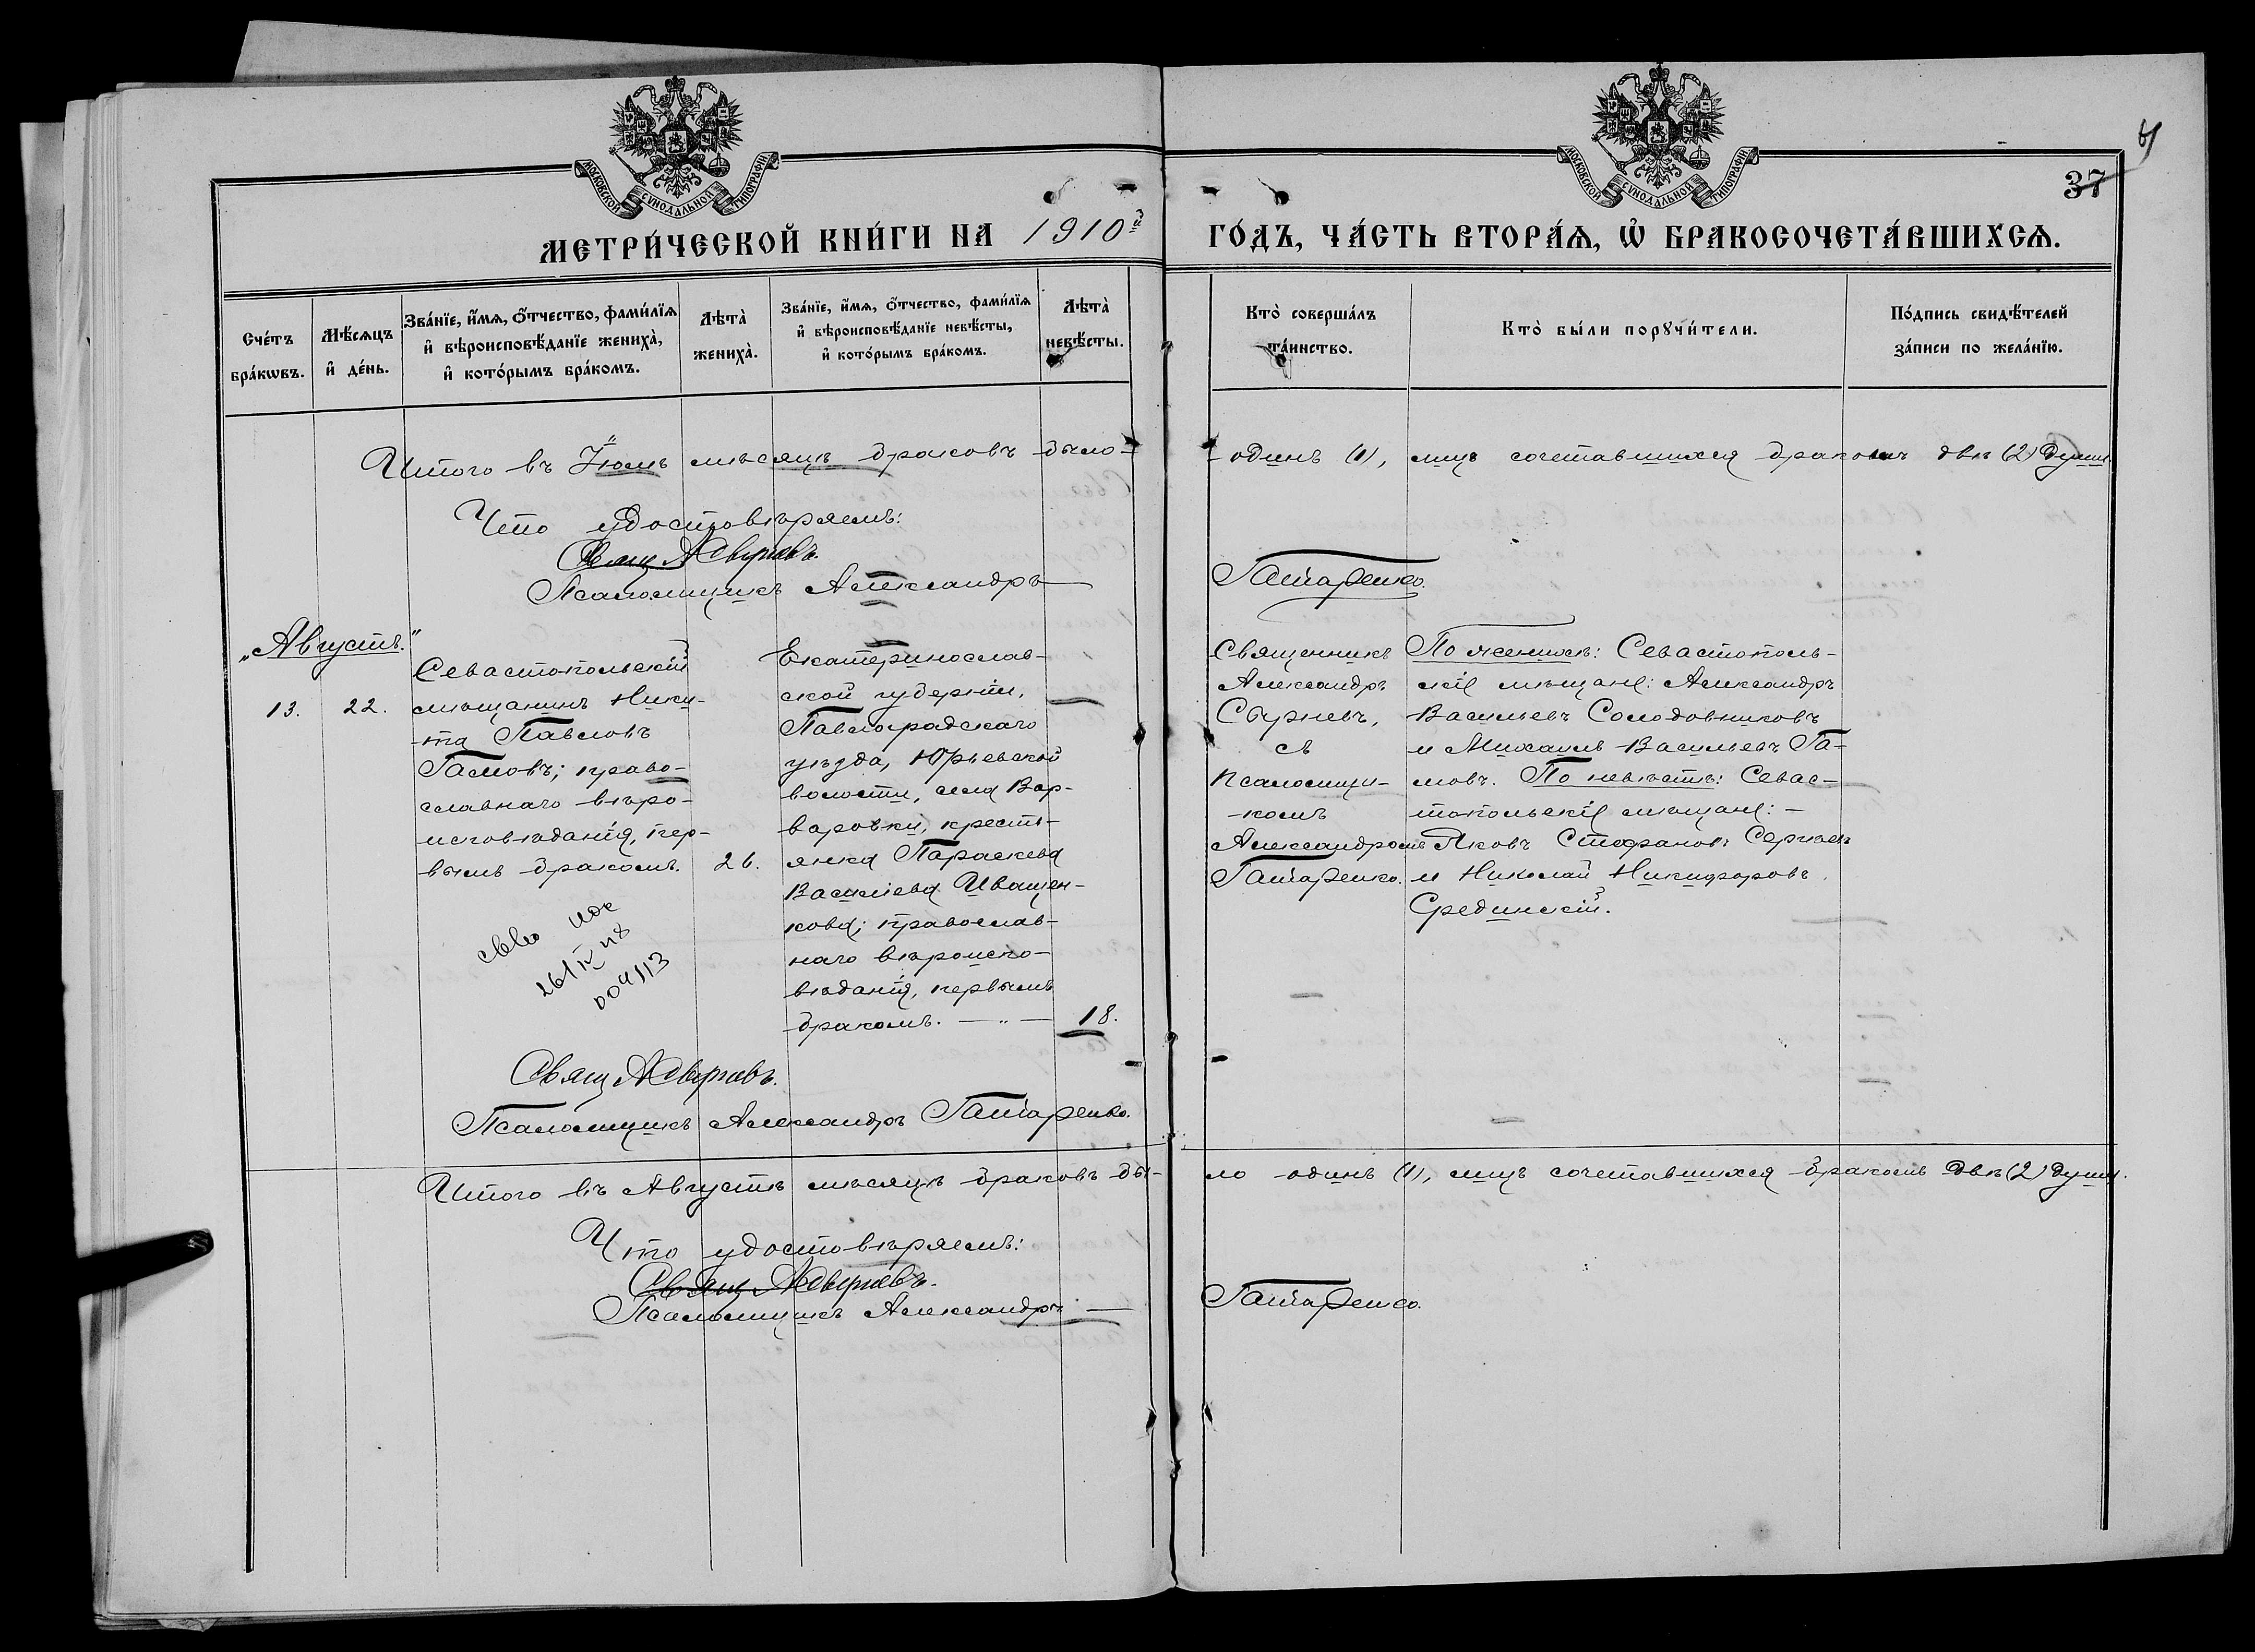 МОСКОВСКОЙ СУНОДАЛЬНОЙ ТИПОГРАФІИ
МОСКОВСКОЙ СУНОДАЛЬНОЙ ТИПОГРАФІИ
37
МЕТРИ́ЧЕСКОЙ КНИ́ГИ НА 1910й ГО́ДЪ, ЧА́СТЬ ВТОРА́Ѧ, Ѽ БРАКОСОЧЕТА́ВШИХСѦ.
Сче́тъ
бра́кωвъ.
Мѣ́сѧцъ
и҆ де́нь.
Зва́нїе, и҆́мѧ, ѻ҆́тчество, фами́лїѧ
и҆ вѣроисповѣ́данїе жениха̀,
и҆ кото́рымъ бра́комъ.
Лѣта̀
жениха̀.
Зва́нїе, и҆́мѧ, ѻ҆́тчество, фами́лїѧ
и҆ вѣроисповѣ́данїе невѣ́сты,
и҆ кото́рымъ бра́комъ.
Лѣта̀
невѣ́сты.
Кто̀ соверша́лъ
та́инство.
Кто̀ бы́ли порꙋчи́тели.
По́дпись свидѣ́телей
за́писи по жела́нїю.
Итого въ Іюлѣ мѣсяцѣ браковъ было - одинъ (1), лицъ сочетавшихся бракомъ двѣ (2) души.
Что удостовѣряемъ:
Свящ А Сбурневъ.
Псаломщикъ Александръ Гапаренко.
„Августъ."
13.
22.
Севастопольскій
мѣщанинъ Ники-
-та Павловъ
Гамовъ; право-
славнаго вѣро-
исповѣданія, пер-
вымъ бракомъ.
26.
Екатеринослав-
ской губерніи,
Павлоградскаго
уѣзда, Юрьевской
волости, села Вар-
варовки, кресть-
янка Параскева
Василіева Иващен-
кова; православ-
наго вѣроиспо-
вѣданія, первымъ
бракомъ. — „ —
18.
Священникъ
Александръ
Сбурневъ,
съ
псаломщи-
-комъ
Александромъ
Гапаренко.
По женихѣ: Севастополь-
скіе мѣщане: Александръ
Васильевъ Солодовниковъ
и Михаилъ Васильевъ Га-
мовъ. По невѣстѣ: Севас-
топольскіе мѣщане: —
Яковъ Стефановъ Сергѣевъ
и Николай Никифоровъ
Срединскій.
Свящ А Сбурневъ.
Псаломщикъ Александръ Гапаренко.
Итого въ Августѣ мѣсяцѣ браковъ бы- ло одинъ (1), лицъ сочетавшихся бракомъ двѣ (2) души.
Что удостовѣряемъ:
Свящ А Сбурневъ.
Псаломщикъ Александръ — Гапаренко.